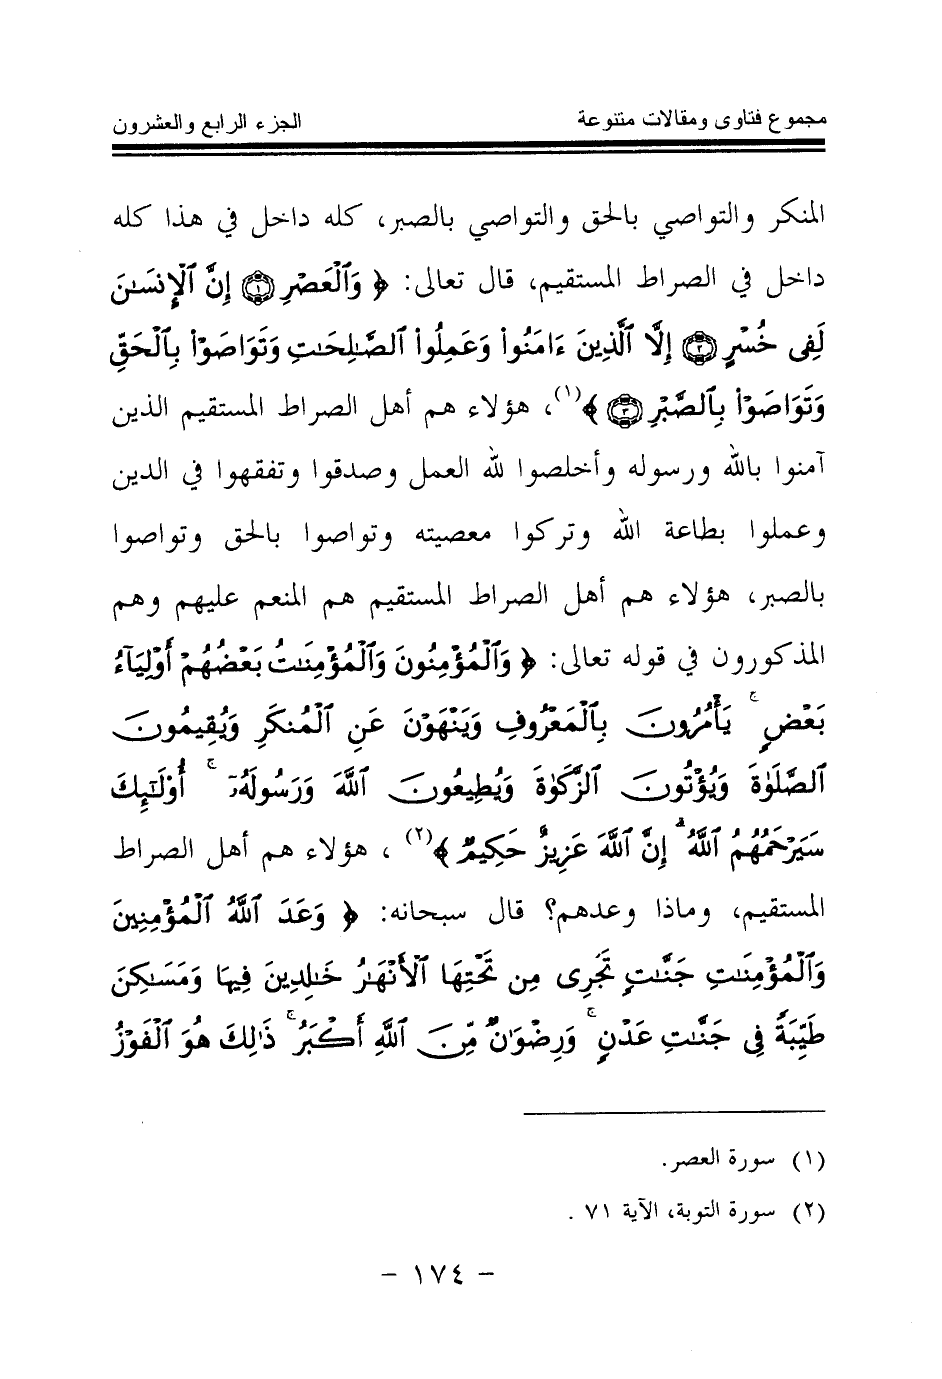 مجموع فتاوى ومقالات متنوعة الجزء الرابع والعشرون
المنكر والتواصي بالحق والتواصي بالصبر، كله داخل في هذا كله
داخل في الصراط المستقيم، قال تعالى: ﴿ وَٱلْعَصْرِ ۝١ إِنَّ ٱلْإِنسَـٰنَ
لَفِى خُسْرٍ ۝٢ إِلَّا ٱلَّذِينَ ءَامَنُوا۟ وَعَمِلُوا۟ ٱلصَّـٰلِحَـٰتِ وَتَوَاصَوْا۟ بِٱلْحَقِّ
وَتَوَاصَوْا۟ بِٱلصَّبْرِ ۝٣ ﴾(١)، هؤلاء هم أهل الصراط المستقيم الذين
آمنوا بالله ورسوله وأخلصوا لله العمل وصدقوا وتفقهوا في الدين
وعملوا بطاعة الله وتركوا معصيته وتواصوا بالحق وتواصوا
بالصبر، هؤلاء هم أهل الصراط المستقيم هم المنعم عليهم وهم
المذكورون في قوله تعالى: ﴿ وَٱلْمُؤْمِنُونَ وَٱلْمُؤْمِنَـٰتُ بَعْضُهُمْ أَوْلِيَآءُ
بَعْضٍ ۚ يَأْمُرُونَ بِٱلْمَعْرُوفِ وَيَنْهَوْنَ عَنِ ٱلْمُنكَرِ وَيُقِيمُونَ
ٱلصَّلَوٰةَ وَيُؤْتُونَ ٱلزَّكَوٰةَ وَيُطِيعُونَ ٱللَّهَ وَرَسُولَهُۥٓ ۚ أُو۟لَـٰٓئِكَ
سَيَرْحَمُهُمُ ٱللَّهُ ۗ إِنَّ ٱللَّهَ عَزِيزٌ حَكِيمٌ ﴾(٢) ، هؤلاء هم أهل الصراط
المستقيم، وماذا وعدهم؟ قال سبحانه: ﴿ وَعَدَ ٱللَّهُ ٱلْمُؤْمِنِينَ
وَٱلْمُؤْمِنَـٰتِ جَنَّـٰتٍ تَجْرِى مِن تَحْتِهَا ٱلْأَنْهَـٰرُ خَـٰلِدِينَ فِيهَا وَمَسَـٰكِنَ
طَيِّبَةً فِى جَنَّـٰتِ عَدْنٍ ۚ وَرِضْوَٰنٌ مِّنَ ٱللَّهِ أَكْبَرُ ۚ ذَٰلِكَ هُوَ ٱلْفَوْزُ
(١) سورة العصر.
(٢) سورة التوبة، الآية ٧١ .
- ١٧٤ -